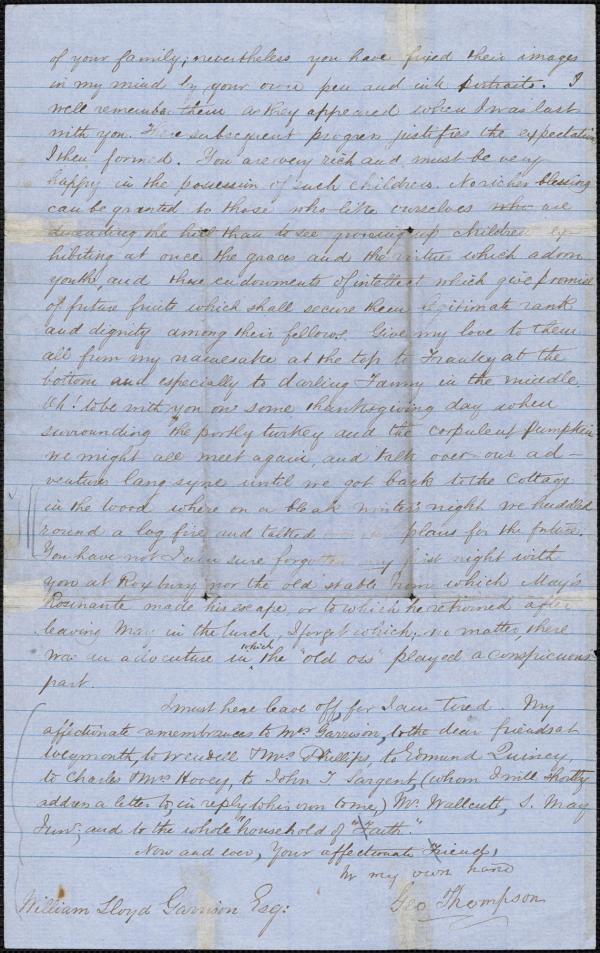 of your family; nevertheless you have fixed their images
in my mind by your own pen and ink portraits. I
well remember them as they appeared when I was last
with you. Their subsequent progress justifies the expectation
I then formed. You are very rich and must be very
happy in the possession of such children. No richer blessing
can be granted to those who like ourselves who are
descending the hill than to see growing up children ex-
hibiting at once the graces and the virtues which adorn
youth, and those endowments of intellect which give promise
of future fruits which shall secure them legitimate rank
and dignity among their fellows. Give my love to them
all from my namesake at the top to Franky at the
bottom and especially to darling Fanny in the middle.
Oh! to be with you on some thanksgiving day when
surrounding the portly turkey and the corpulent pumpkin
we might all meet again, and talk over our ad-
ventures lang syne until we got back to the Cottage
in the wood where on a bleak winter's night we huddled
round a log fire and talked plans for the future.
You have not I am sure forgotten my first night with
you at Roxbury nor the old stable from which May's
Rosinante made his escape or to which he returned after
leaving May in the lurch, I forget which; no matter, there
was an adventure in which the "old oss" played a conspicuous
part.
I must here leave off, for I am tired. My
affectionate remembrances to Mrs Garrison, to the dear friends at
Weymouth, to Wendell & Mrs Phillips, to Edmund Quincy
to Charles & Mrs Hovey, to John T. Sargent, (whom I will shortly
address a letter to, in reply to his own to me,) Mr. Wallcutt, S. May
Junr; and to the whole "household of Faith."
Now and ever, Your affectionate Friend,
In my own hand
Geo Thompson
William Lloyd Garrison Esq: